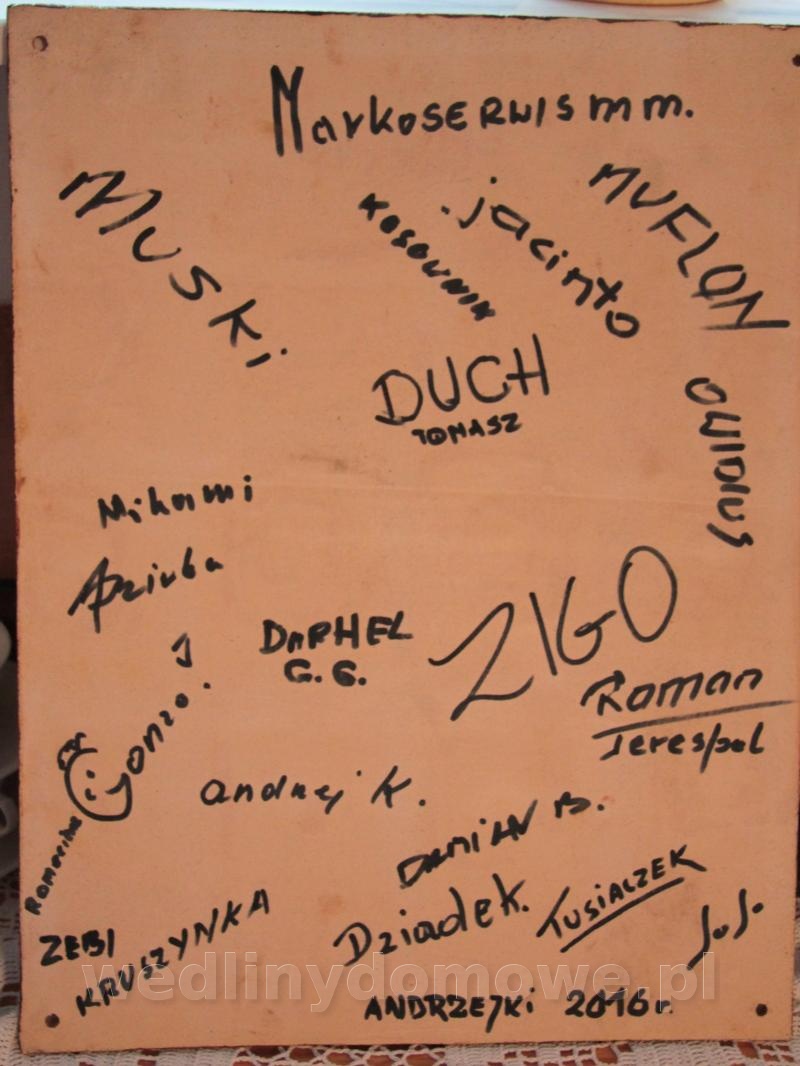 Narkoserwis mm.
MUSKI
KOSOUNIK
jacinto
MUFLON
DUCH
TOMASZ
OWIDIUS
Mihami
Dziuba
DAPHEL
G. G.
ZIGO
Roman
Terespol
Gonzo.
i
andrzej K.
DAMIAN B.
ZEBI
KRUSZYNKA
Dziadek.
TUSIACZEK
J.J.
wedlinydomowe.pl
ANDRZEJKI 2016r.